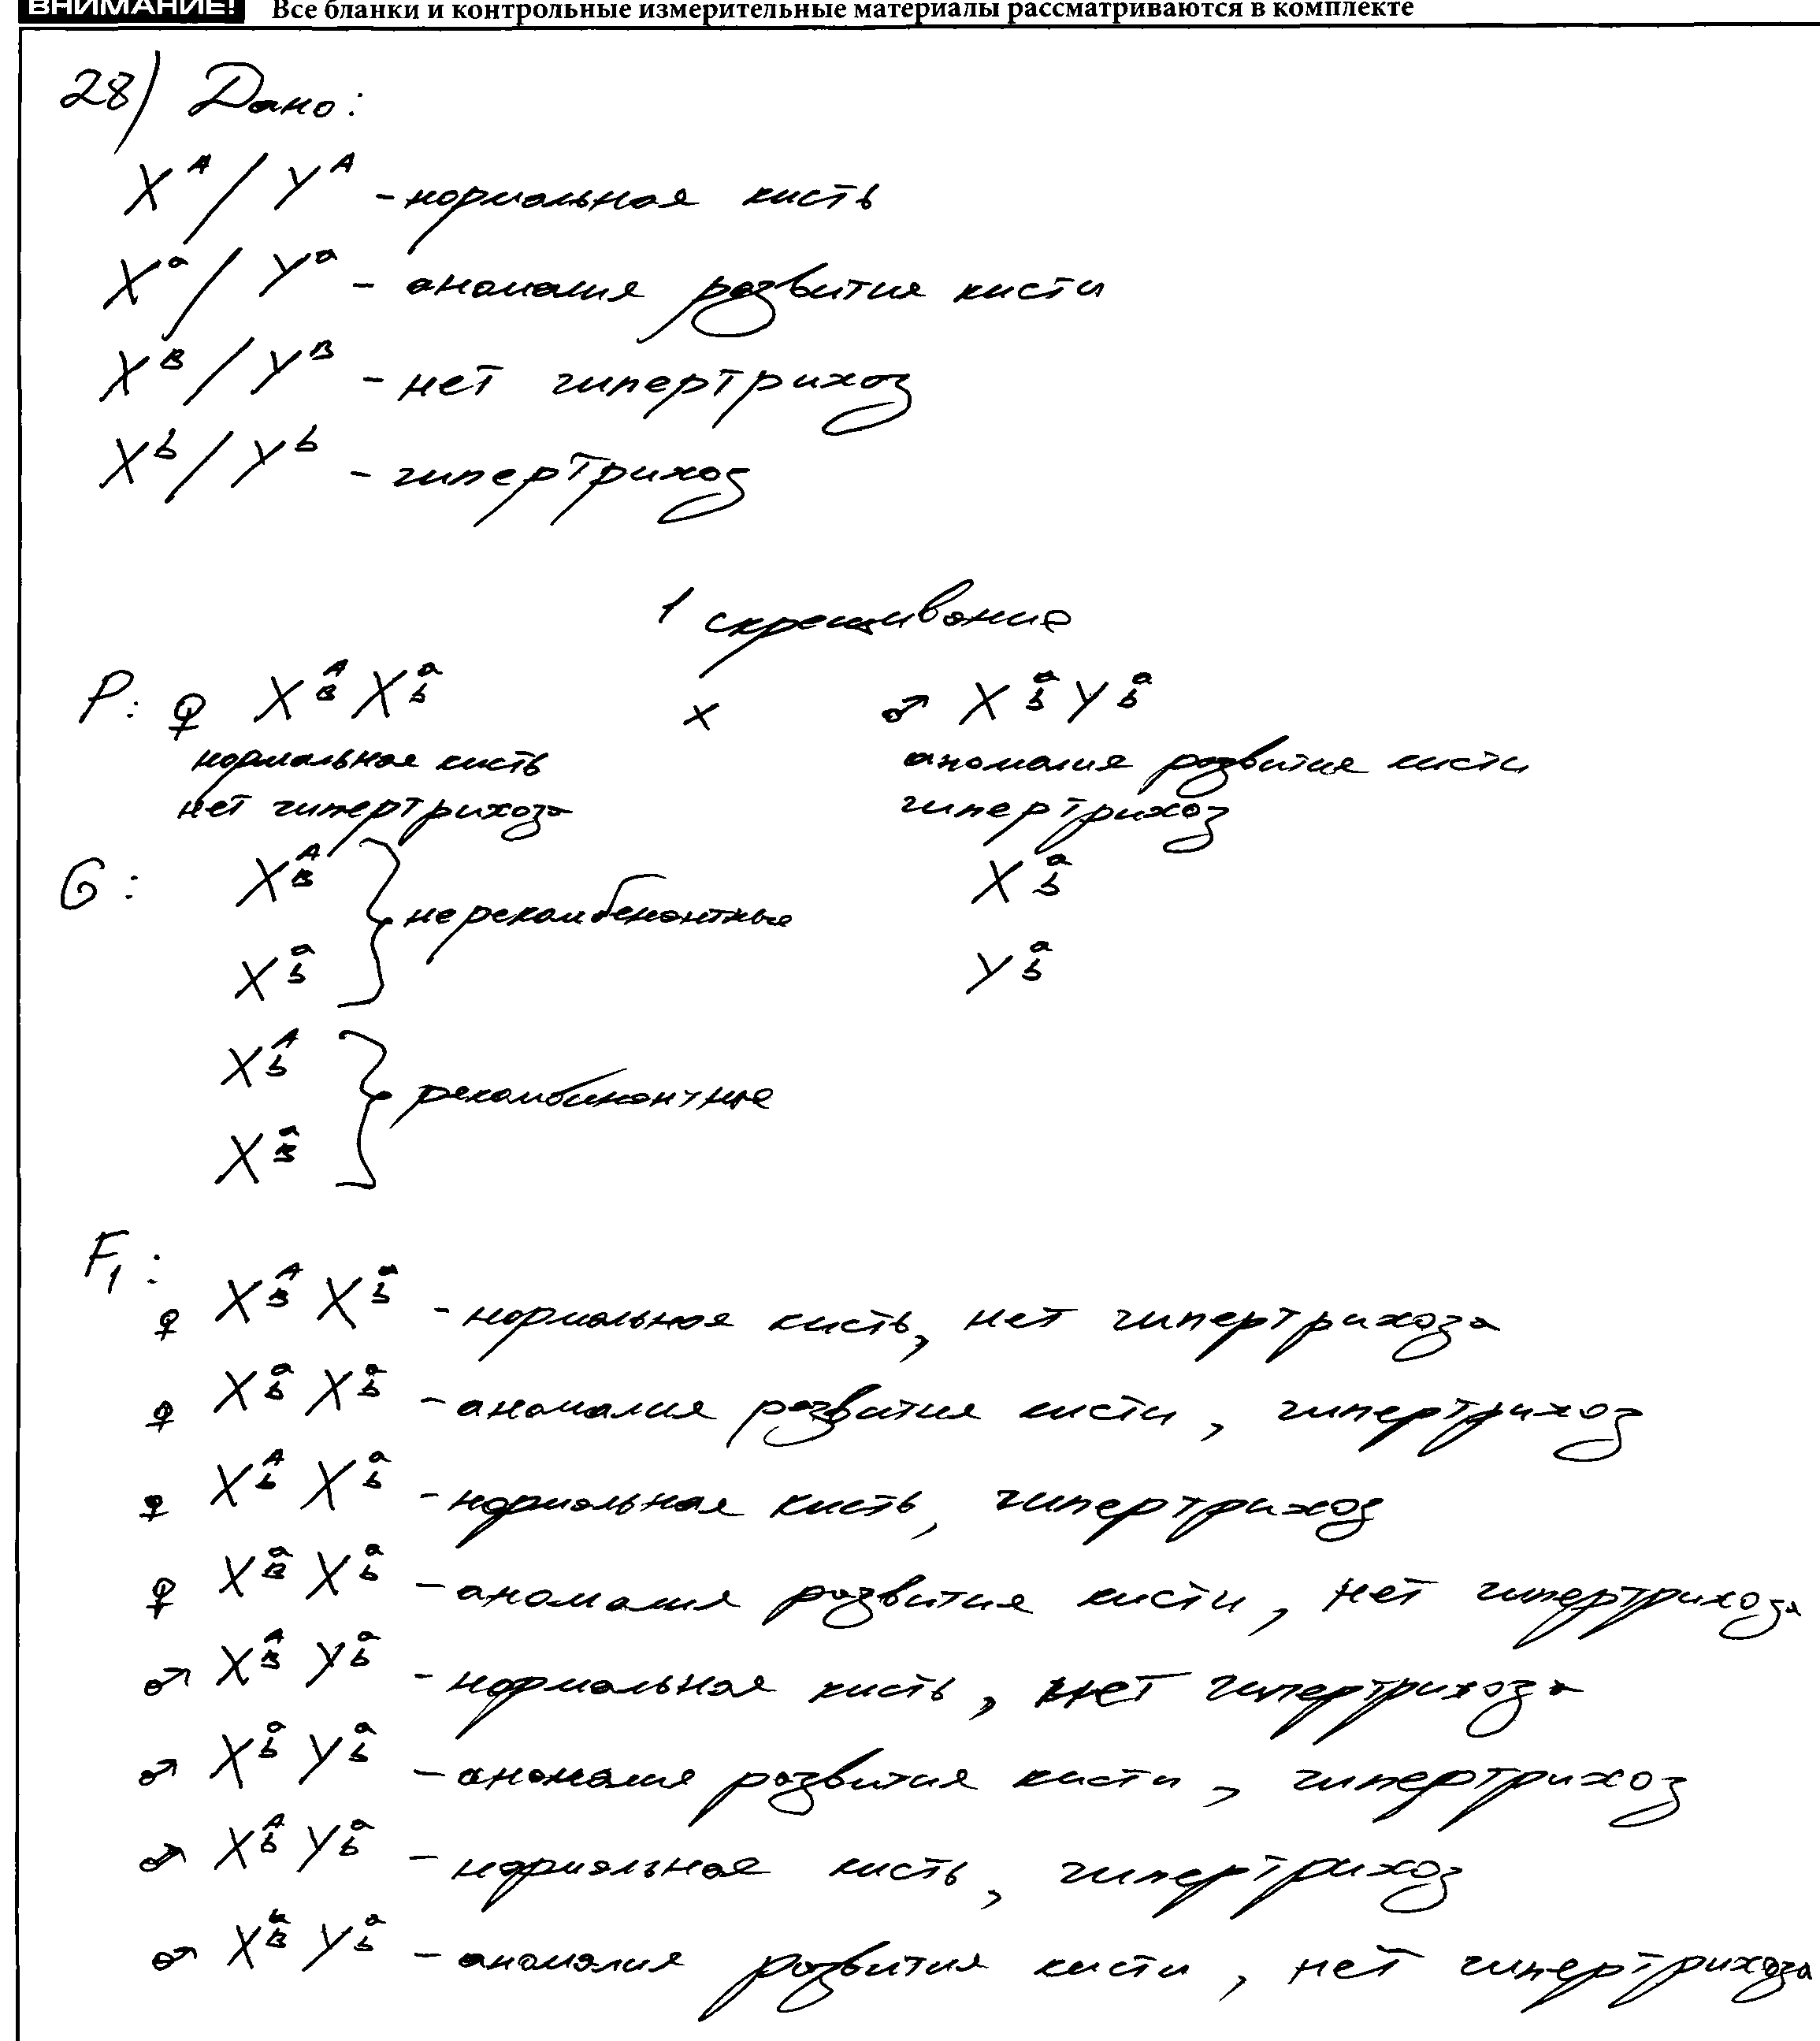 ВНИМАНИЕ! Все бланки и контрольные измерительные материалы рассматриваются в комплекте
28) Дано:
X^A / Y^A - нормальная кисть
X^a / Y^a - аномалия развития кисти
X^B / Y^B - нет гипертрихоз
X^b / Y^b - гипертрихоз
1 скрещивание
P: ♀ X^A_B X^a_b x ♂ X^a_b Y^a_b
нормальная кисть аномалия развития кисти
нет гипертрихоза гипертрихоз
G: X^A_B } нерекомбенантные X^a_b
X^a_b Y^a_b
X^A_b } рекомбинантные
X^a_B
F1:
♀ X^A_B X^a_b - нормальная кисть, нет гипертрихоза
♀ X^a_b X^a_b - аномалия развития кисти, гипертрихоз
♀ X^A_b X^a_b - нормальная кисть, гипертрихоз
♀ X^a_B X^a_b - аномалия развития кисти, нет гипертрихоза
♂ X^A_B Y^a_b - нормальная кисть, нет гипертрихоза
♂ X^a_b Y^a_b - аномалия развития кисти, гипертрихоз
♂ X^A_b Y^a_b - нормальная кисть, гипертрихоз
♂ X^a_B Y^a_b - аномалия развития кисти, нет гипертрихоза